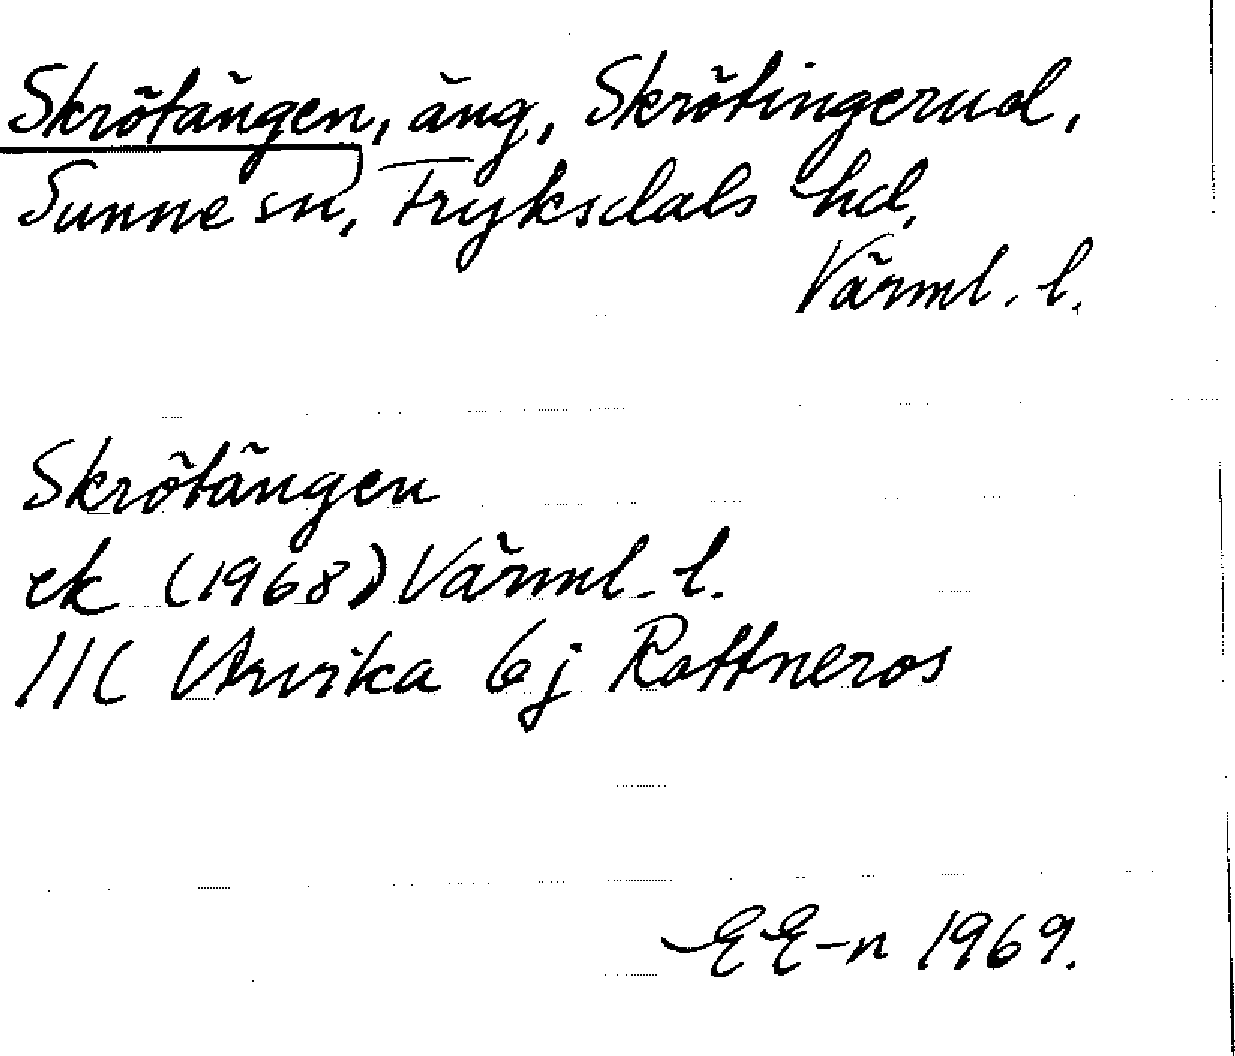 Skrötängen, äng, Skrötingerud,
Sunne sn, Fryksdals hd,
Värml. l.
Skrötängen
ek (1968) Värml. l.
11C Arvika 6j Rottneros
EE-n 1969.